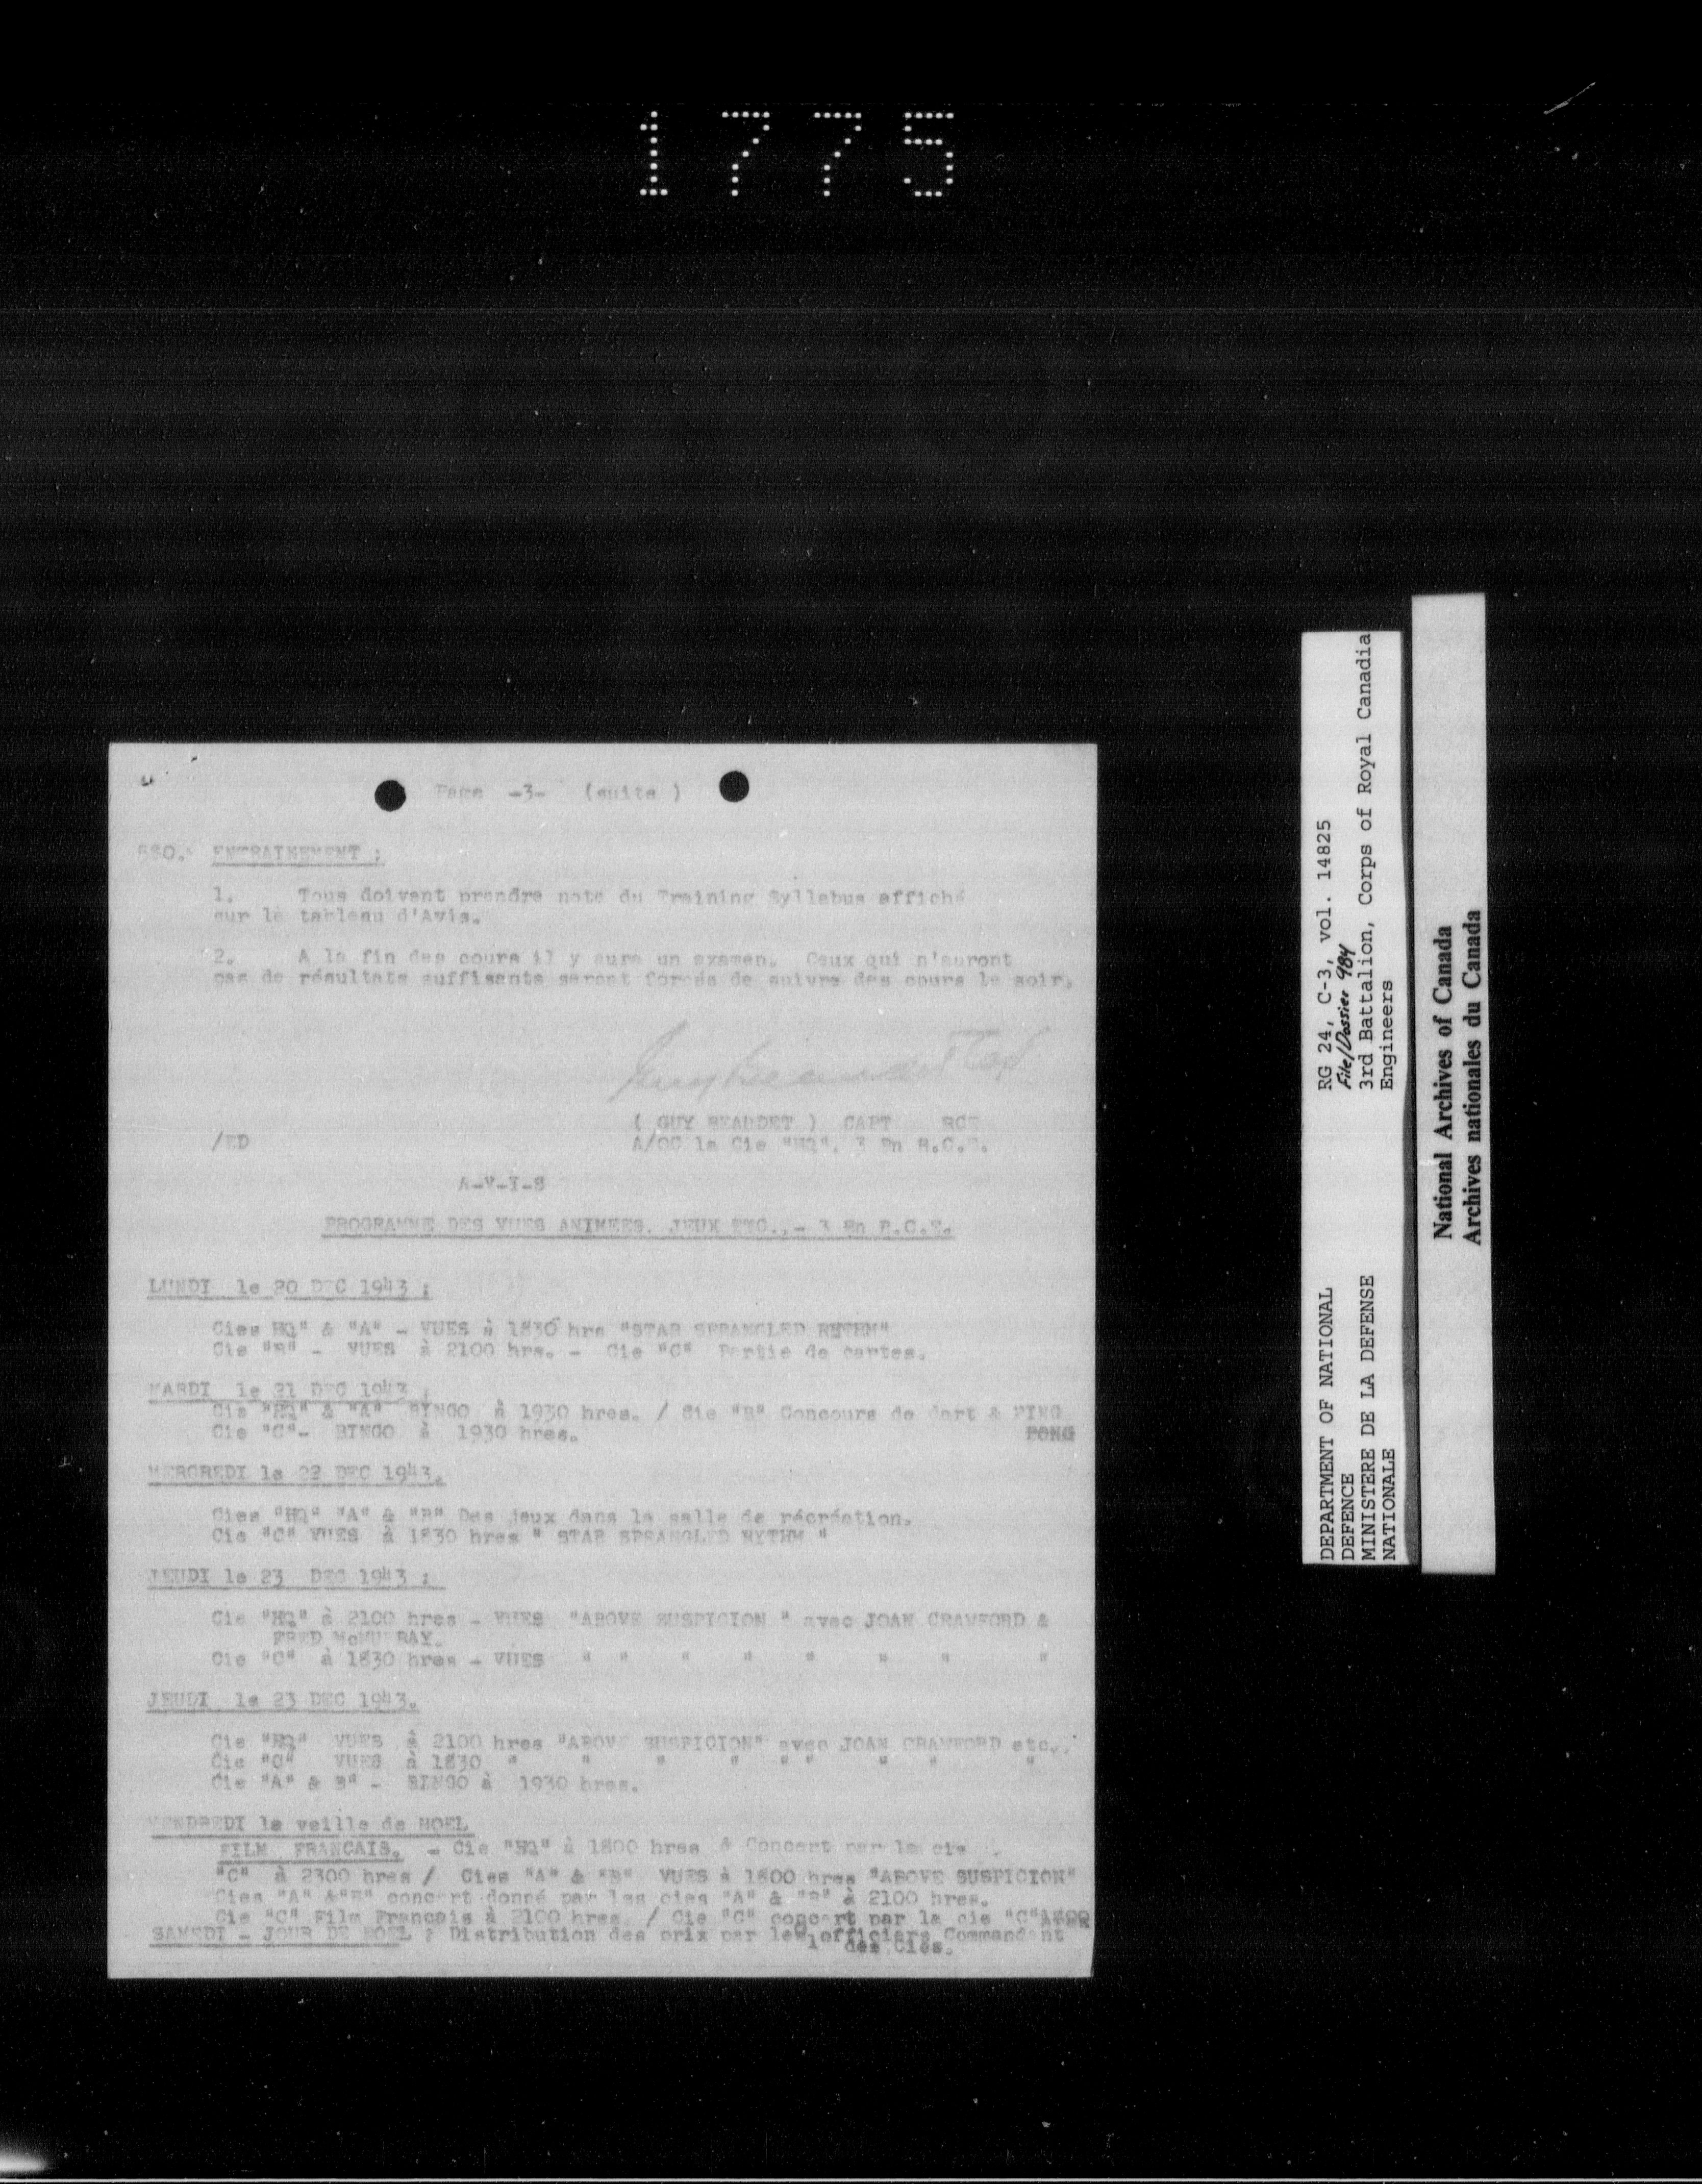 1775
Page -3- (suite )
ENTRAINEMENT :
1. Tous doivent prendre note du Training Syllabus affiché
sur le tableau d'Avis.
2. A la fin des cours il y aura un examen. Ceux qui n'auront
pas de résultats suffisants seront forcés de suivre des cours le soir.
( GUY BEAUDET ) CAPT RCE
/ED A/OC la Cie "HQ", 3 Bn R.C.E.
A-V-I-S
PROGRAMME DES VUES ANIMEES. JEUX ETC.,- 3 Bn R.C.E.
LUNDI le 20 DEC 1943 :
Cies HQ" & "A" - VUES à 1830 hrs "STAR SPRANGLED RYTHM"
Cie "B" - VUES à 2100 hrs. - Cie "C" Partie de cartes.
MARDI le 21 DEC 1943 :
Cie "HQ" & "A" BINGO à 1930 hres. / Cie "B" Concours de dart & PING
Cie "C"- BINGO à 1930 hres. PONG
MERCREDI le 22 DEC 1943.
Cies "HQ" "A" & "B" Des jeux dans la salle de récréation.
Cie "C" VUES à 1830 hres " STAR SPRANGLED RYTHM "
JEUDI le 23 DEC 1943 :
Cie "HQ" à 2100 hres - VUES "ABOVE SUSPICION " avec JOAN CRAWFORD &
FRED McMURRAY.
Cie "C" à 1830 hres - VUES " " " " " " " "
JEUDI le 23 DEC 1943.
Cie "HQ" VUES à 2100 hres "ABOVE SUSPICION" avec JOAN CRAWFORD etc..
Cie "C" VUES à 1830 " " " " " " " " "
Cie "A" & B" - BINGO à 1930 hres.
VENDREDI la veille de NOEL
FILM FRANCAIS. - Cie "HQ" à 1800 hres & Concert par la cie
"C" à 2300 hres / Cies "A" & "B" VUES à 1800 hres "ABOVE SUSPICION"
Cies "A" &"B" concert donné par les cies "A" & "B" à 2100 hres.
Cie "C" Film Francais à 2100 hres. / Cie "C" concert par la cie "C"
SAMEDI - JOUR DE NOEL : Distribution des prix par les officiers Commandant
des Cies.
RG 24, C-3, vol. 14825
File/Dossier 984
3rd Battalion, Corps of Royal Canadia
Engineers
DEPARTMENT OF NATIONAL
DEFENCE
MINISTERE DE LA DEFENSE
NATIONALE
National Archives of Canada
Archives nationales du Canada